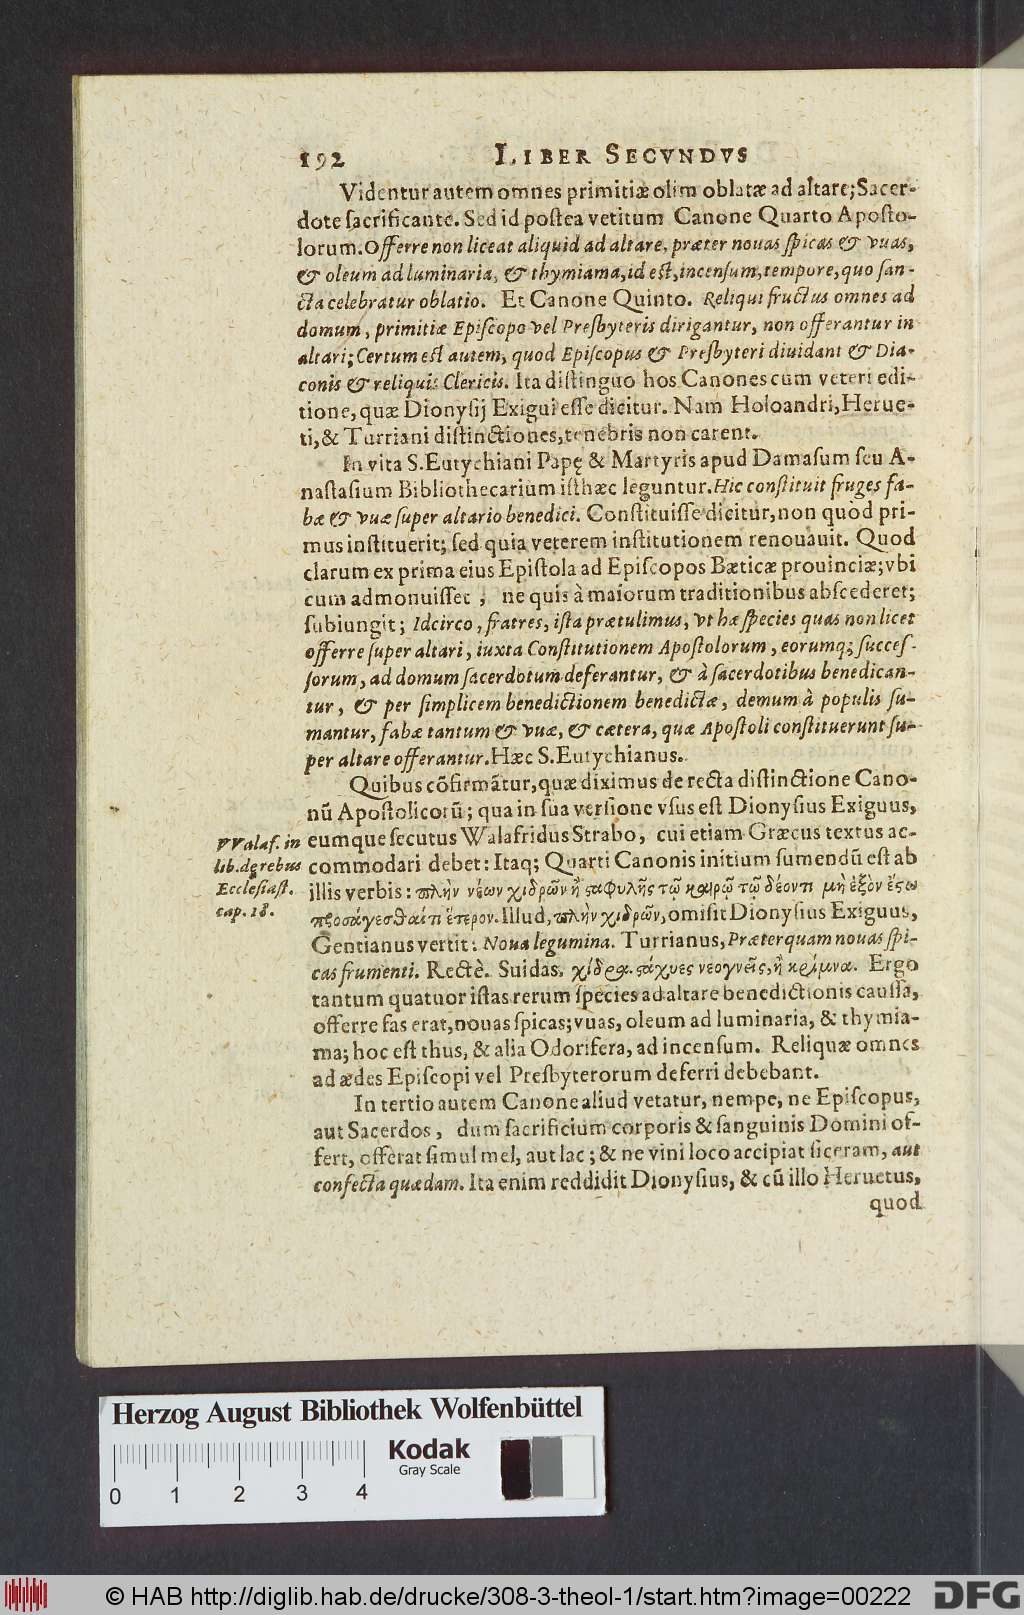 192 LIBER SECVNDVS
Videntur autem omnes primitiæ olim oblatæ ad altare; Sacer-
dote sacrificante. Sed id postea vetitum Canone Quarto Aposto-
lorum. Offerre non liceat aliquid ad altare, præter nouas spicas & vuas,
& oleum ad luminaria, & thymiama, id est, incensum, tempore, quo san-
cta celebratur oblatio. Et Canone Quinto. Reliqui fructus omnes ad
domum, primitiæ Episcopo vel Presbyteris dirigantur, non offerantur in
altari; Certum est autem, quod Episcopus & Presbyteri diuidant & Dia-
conis & reliquis Clericis. Ita distinguo hos Canones cum veteri edi-
tione, quæ Dionysij Exigui esse dicitur. Nam Holoandri, Herue-
ti, & Turriani distinctiones, tenebris non carent.
In vita S. Eutychiani Papę & Martyris apud Damasum seu A-
nastasium Bibliothecarium isthæc leguntur. Hic constituit fruges fa-
bæ & vuæ super altario benedici. Constituisse dicitur, non quòd pri-
mus instituerit; sed quia veterem institutionem renouauit. Quod
clarum ex prima eius Epistola ad Episcopos Bæticæ prouinciæ; vbi
cum admonuisset, ne quis à maiorum traditionibus abscederet;
subiungit; Idcirco, fratres, ista prætulimus, vt hæ species quas non licet
offerre super altari, iuxta Constitutionem Apostolorum, eorumq; succes-
sorum, ad domum sacerdotum deferantur, & à sacerdotibus benedican-
tur, & per simplicem benedictionem benedictæ, demum à populis su-
mantur, fabæ tantum & vuæ, & cætera, quæ Apostoli constituerunt su-
per altare offerantur. Hæc S. Eutychianus.
Quibus cõfirmãtur, quæ diximus de recta distinctione Cano-
nũ Apostolicorũ; qua in sua versione vsus est Dionysius Exiguus,
eumque secutus Walafridus Strabo, cui etiam Græcus textus ac-
commodari debet: Itaq; Quarti Canonis initium sumendũ est ab
illis verbis: πλὴν νέων χιδρῶν ἢ σταφυλῆς τῷ καιρῷ τῷ δέοντι μὴ ἐξὸν ἔστω
προσάγεσθαί τι ἕτερον. Illud, πλὴν χιδρῶν, omisit Dionysius Exiguus,
Gentianus vertit: Noua legumina. Turrianus, Præterquam nouas spi-
cas frumenti. Rectè. Suidas, χίδρα. στάχυες νεογνεῖς, ἢ κρίμνα. Ergo
tantum quatuor istas rerum species ad altare benedictionis caussa,
offerre fas erat, nouas spicas; vuas, oleum ad luminaria, & thymia-
ma; hoc est thus, & alia Odorifera, ad incensum. Reliquæ omnes
ad ædes Episcopi vel Presbyterorum deferri debebant.
In tertio autem Canone aliud vetatur, nempe, ne Episcopus,
aut Sacerdos, dum sacrificium corporis & sanguinis Domini of-
fert, offerat simul mel, aut lac; & ne vini loco accipiat siceram, aut
confecta quædam. Ita enim reddidit Dionysius, & cũ illo Heruetus,
quod
VValaf. in
lib. de rebus
Ecclesiast.
cap. 18.
Herzog August Bibliothek Wolfenbüttel
Kodak
Gray Scale
0 1 2 3 4
© HAB http://diglib.hab.de/drucke/308-3-theol-1/start.htm?image=00222
DFG